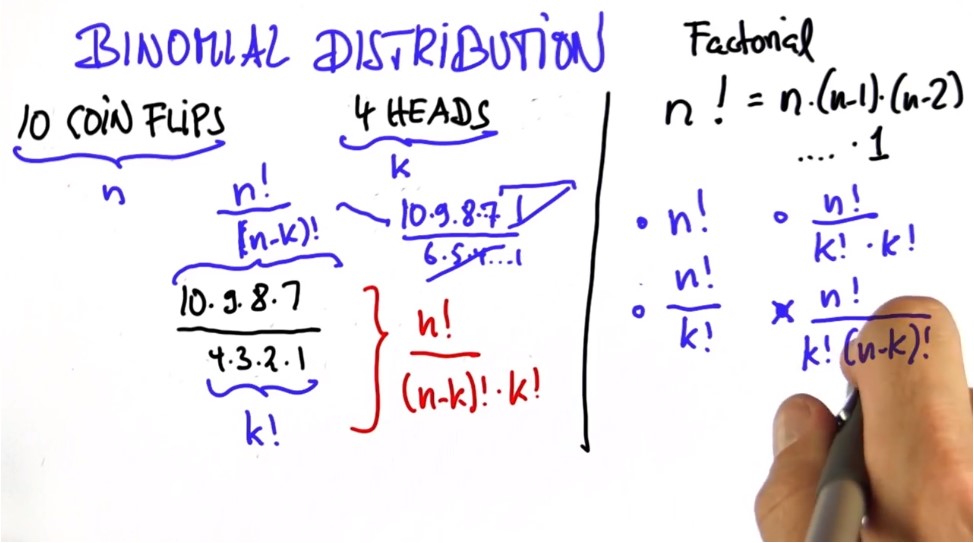 BINOMIAL DISTRIBUTION
10 COIN FLIPS
4 HEADS
n
k
n!
(n-k)!
10·9·8·7 1
6·5·4...1
10·9·8·7
4·3·2·1
k!
n!
(n-k)!·k!
Factorial
n! = n·(n-1)·(n-2)
.... · 1
n!
n!
k! · k!
n!
k!
n!
k! (n-k)!